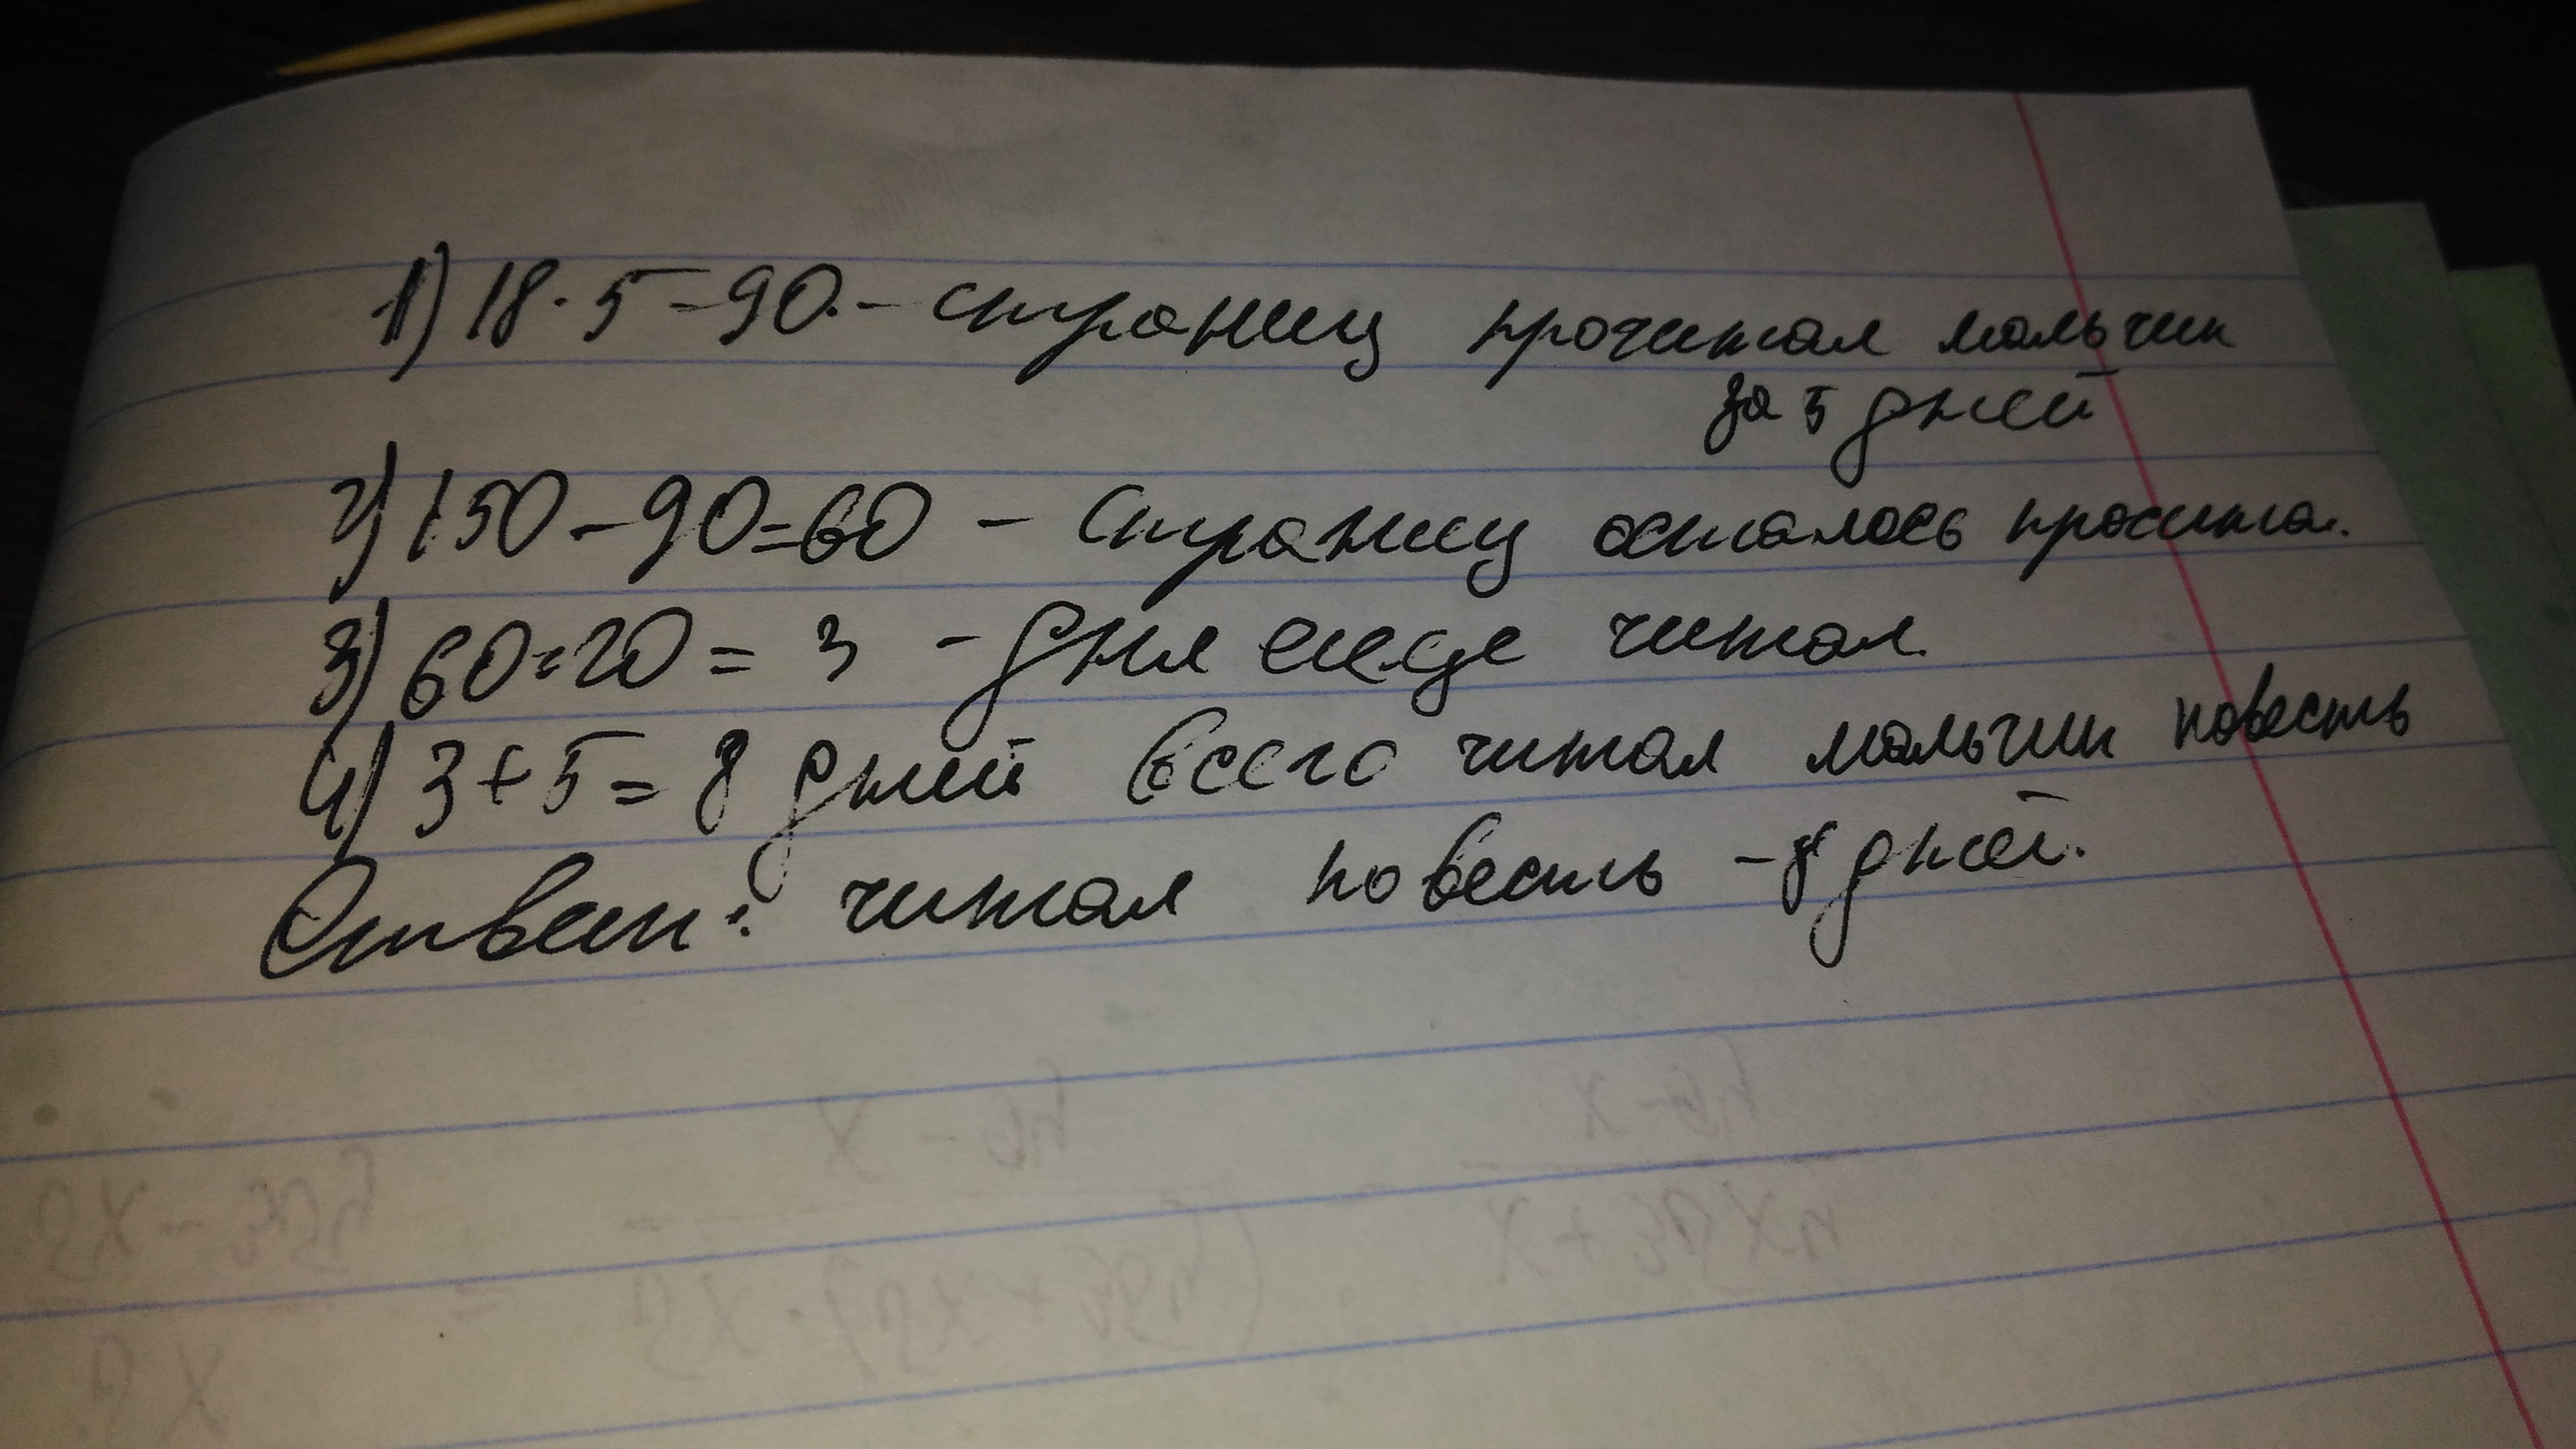 1) 18·5=90.- страниц прочитал мальчик
за 5 дней
2) 150-90=60 - страниц осталось прочита.
3) 60:20 = 3 - дня еще читал.
4) 3+5= 8 дней всего читал мальчик повесть
Ответ: читал повесть -8 дней.